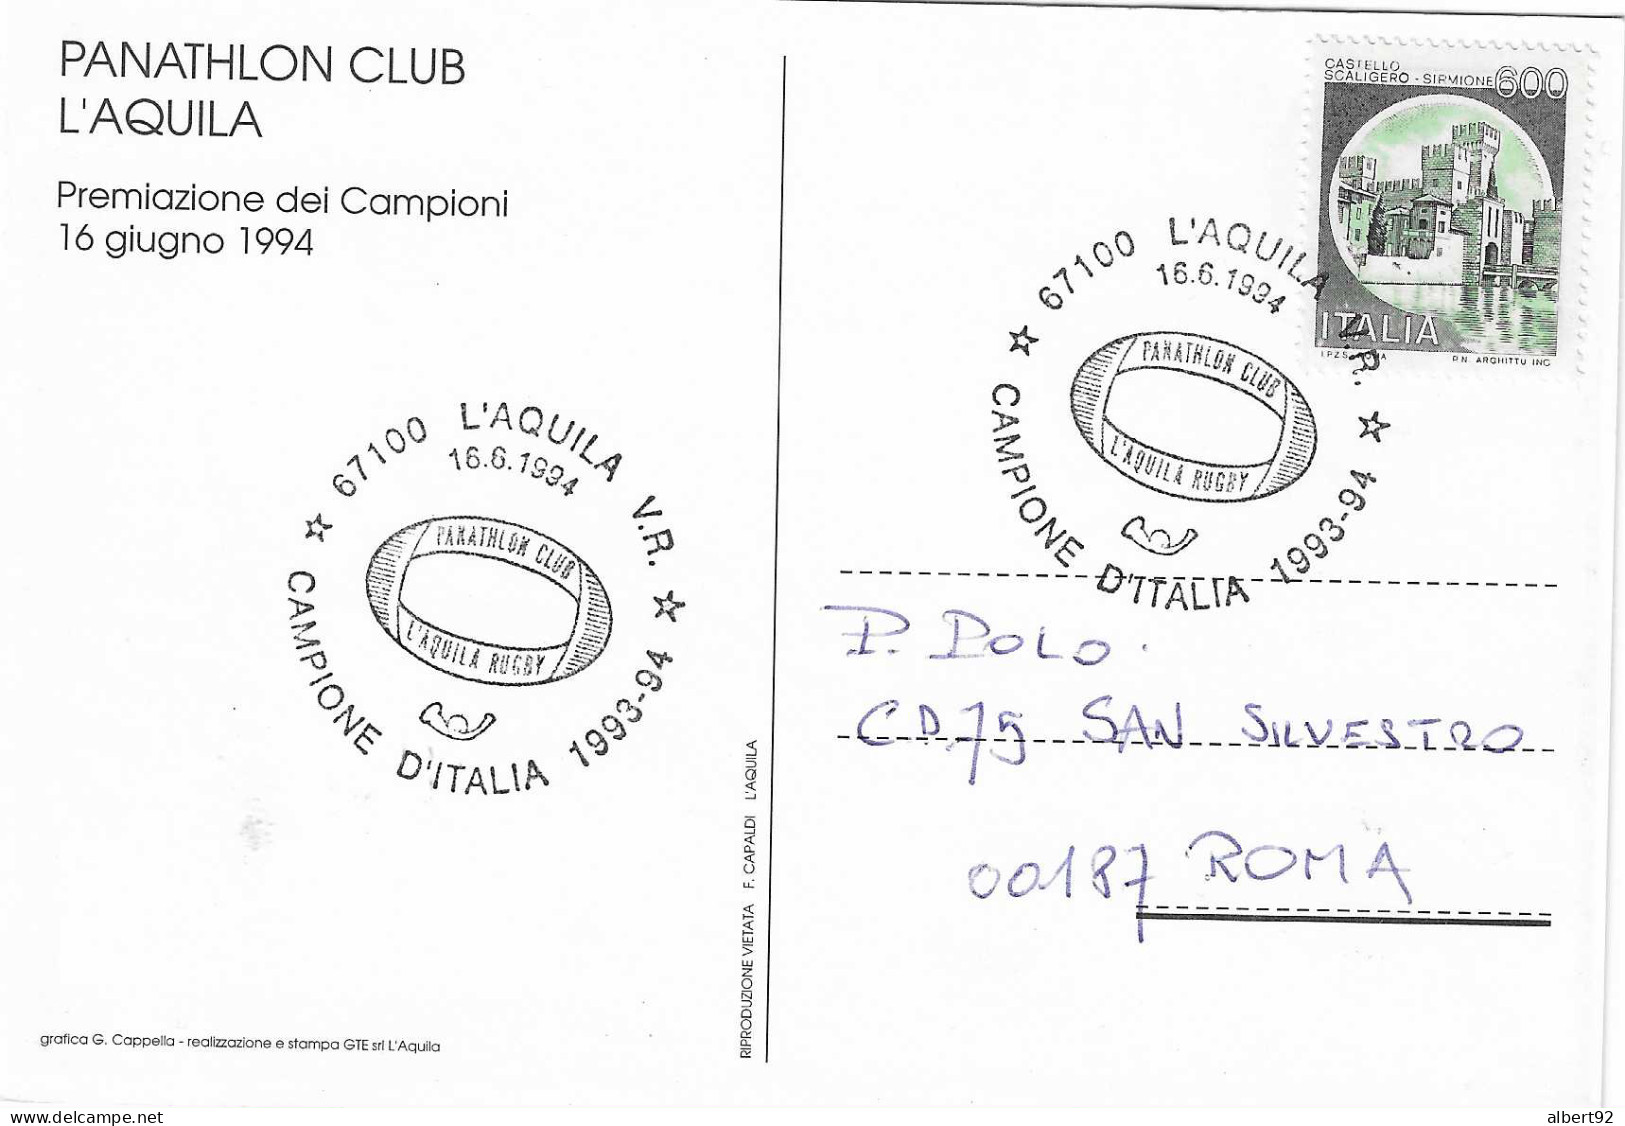 PANATHLON CLUB
L'AQUILA
Premiazione dei Campioni
16 giugno 1994
67100 L'AQUILA V.R.
16.6.1994
PANATHLON CLUB
L'AQUILA RUGBY
CAMPIONE D'ITALIA 1993-94
grafica G. Cappella - realizzazione e stampa GTE srl L'Aquila
RIPRODUZIONE VIETATA F. CAPALDI L'AQUILA
CASTELLO
SCALIGERO - SIRMIONE 600
ITALIA
P.N. ARCHITTU INC.
67100 L'AQUILA V.R.
16.6.1994
PANATHLON CLUB
L'AQUILA RUGBY
CAMPIONE D'ITALIA 1993-94
P. POLO.
CD.75 SAN SILVESTRO
00187 ROMA
www.delcampe.net
albert92